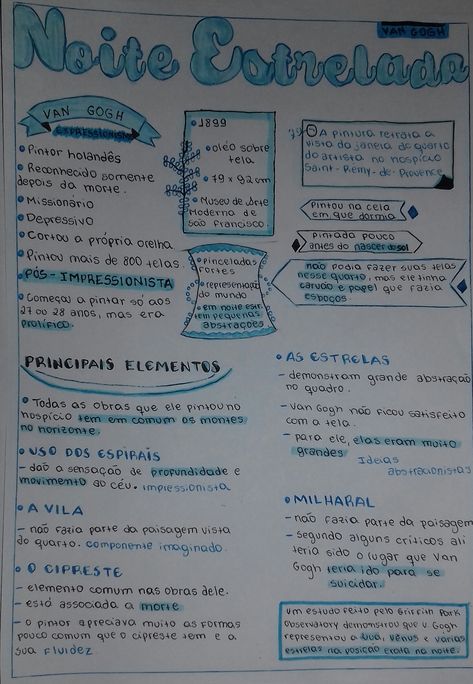 VAN GOGH
Noite Estrelada
VAN GOGH
EXPRESSIONISMO
• Pintor holandês
• Reconhecido somente
depois da morte.
• Missionário
• Depressivo
• Cortou a própria orelha.
• Pintou mais de 800 telas.
PÓS-IMPRESSIONISTA
• Começou a pintar só aos
27 ou 28 anos, mas era
prolífico.
• 1899
• oléo sobre
tela.
• 79 x 92 cm
• Museu de Arte
Moderna de
são francisco.
• pinceladas
fortes
• representação
do mundo
• em noite estr.
tem pequenas
abstrações
A pintura retrata a
vista da janela do quarto
do artista no hospício
Saint-Remy-de-Provence
Pintou na cela
em que dormia
Pintada pouco
antes do nascer do sol
não podia fazer suas telas
nesse quarto, mas ele tinha
carvão e papel que fazia
esboços.
PRINCIPAIS ELEMENTOS
• Todas as obras que ele pintou no
hospício tem em comum os montes
no horizonte.
• USO DOS ESPIRAIS
- dão a sensação de profundidade e
movimento ao céu. impressionista
• A VILA
- não fazia parte da paisagem vista
do quarto. componente imaginado.
• O CIPRESTE
- elemento comum nas obras dele.
- está associada a morte
- o pintor apreciava muito as formas
pouco comum que o cipreste tem e a
sua fluidez
• AS ESTRELAS
- demonstram grande abstração
no quadro.
- Van Gogh não ficou satisfeito
com a tela.
- para ele, elas eram muito
grandes
Ideias
abstracionistas
• MILHARAL
- não fazia parte da paisagem
- segundo alguns críticos ali
teria sido o lugar que Van
Gogh teria ido para se
suicidar.
um estudo feito pelo Griffith Park
Observatory demonstrou que V. Gogh
representou a lua, vênus e várias
estrelas na posição exata na noite.